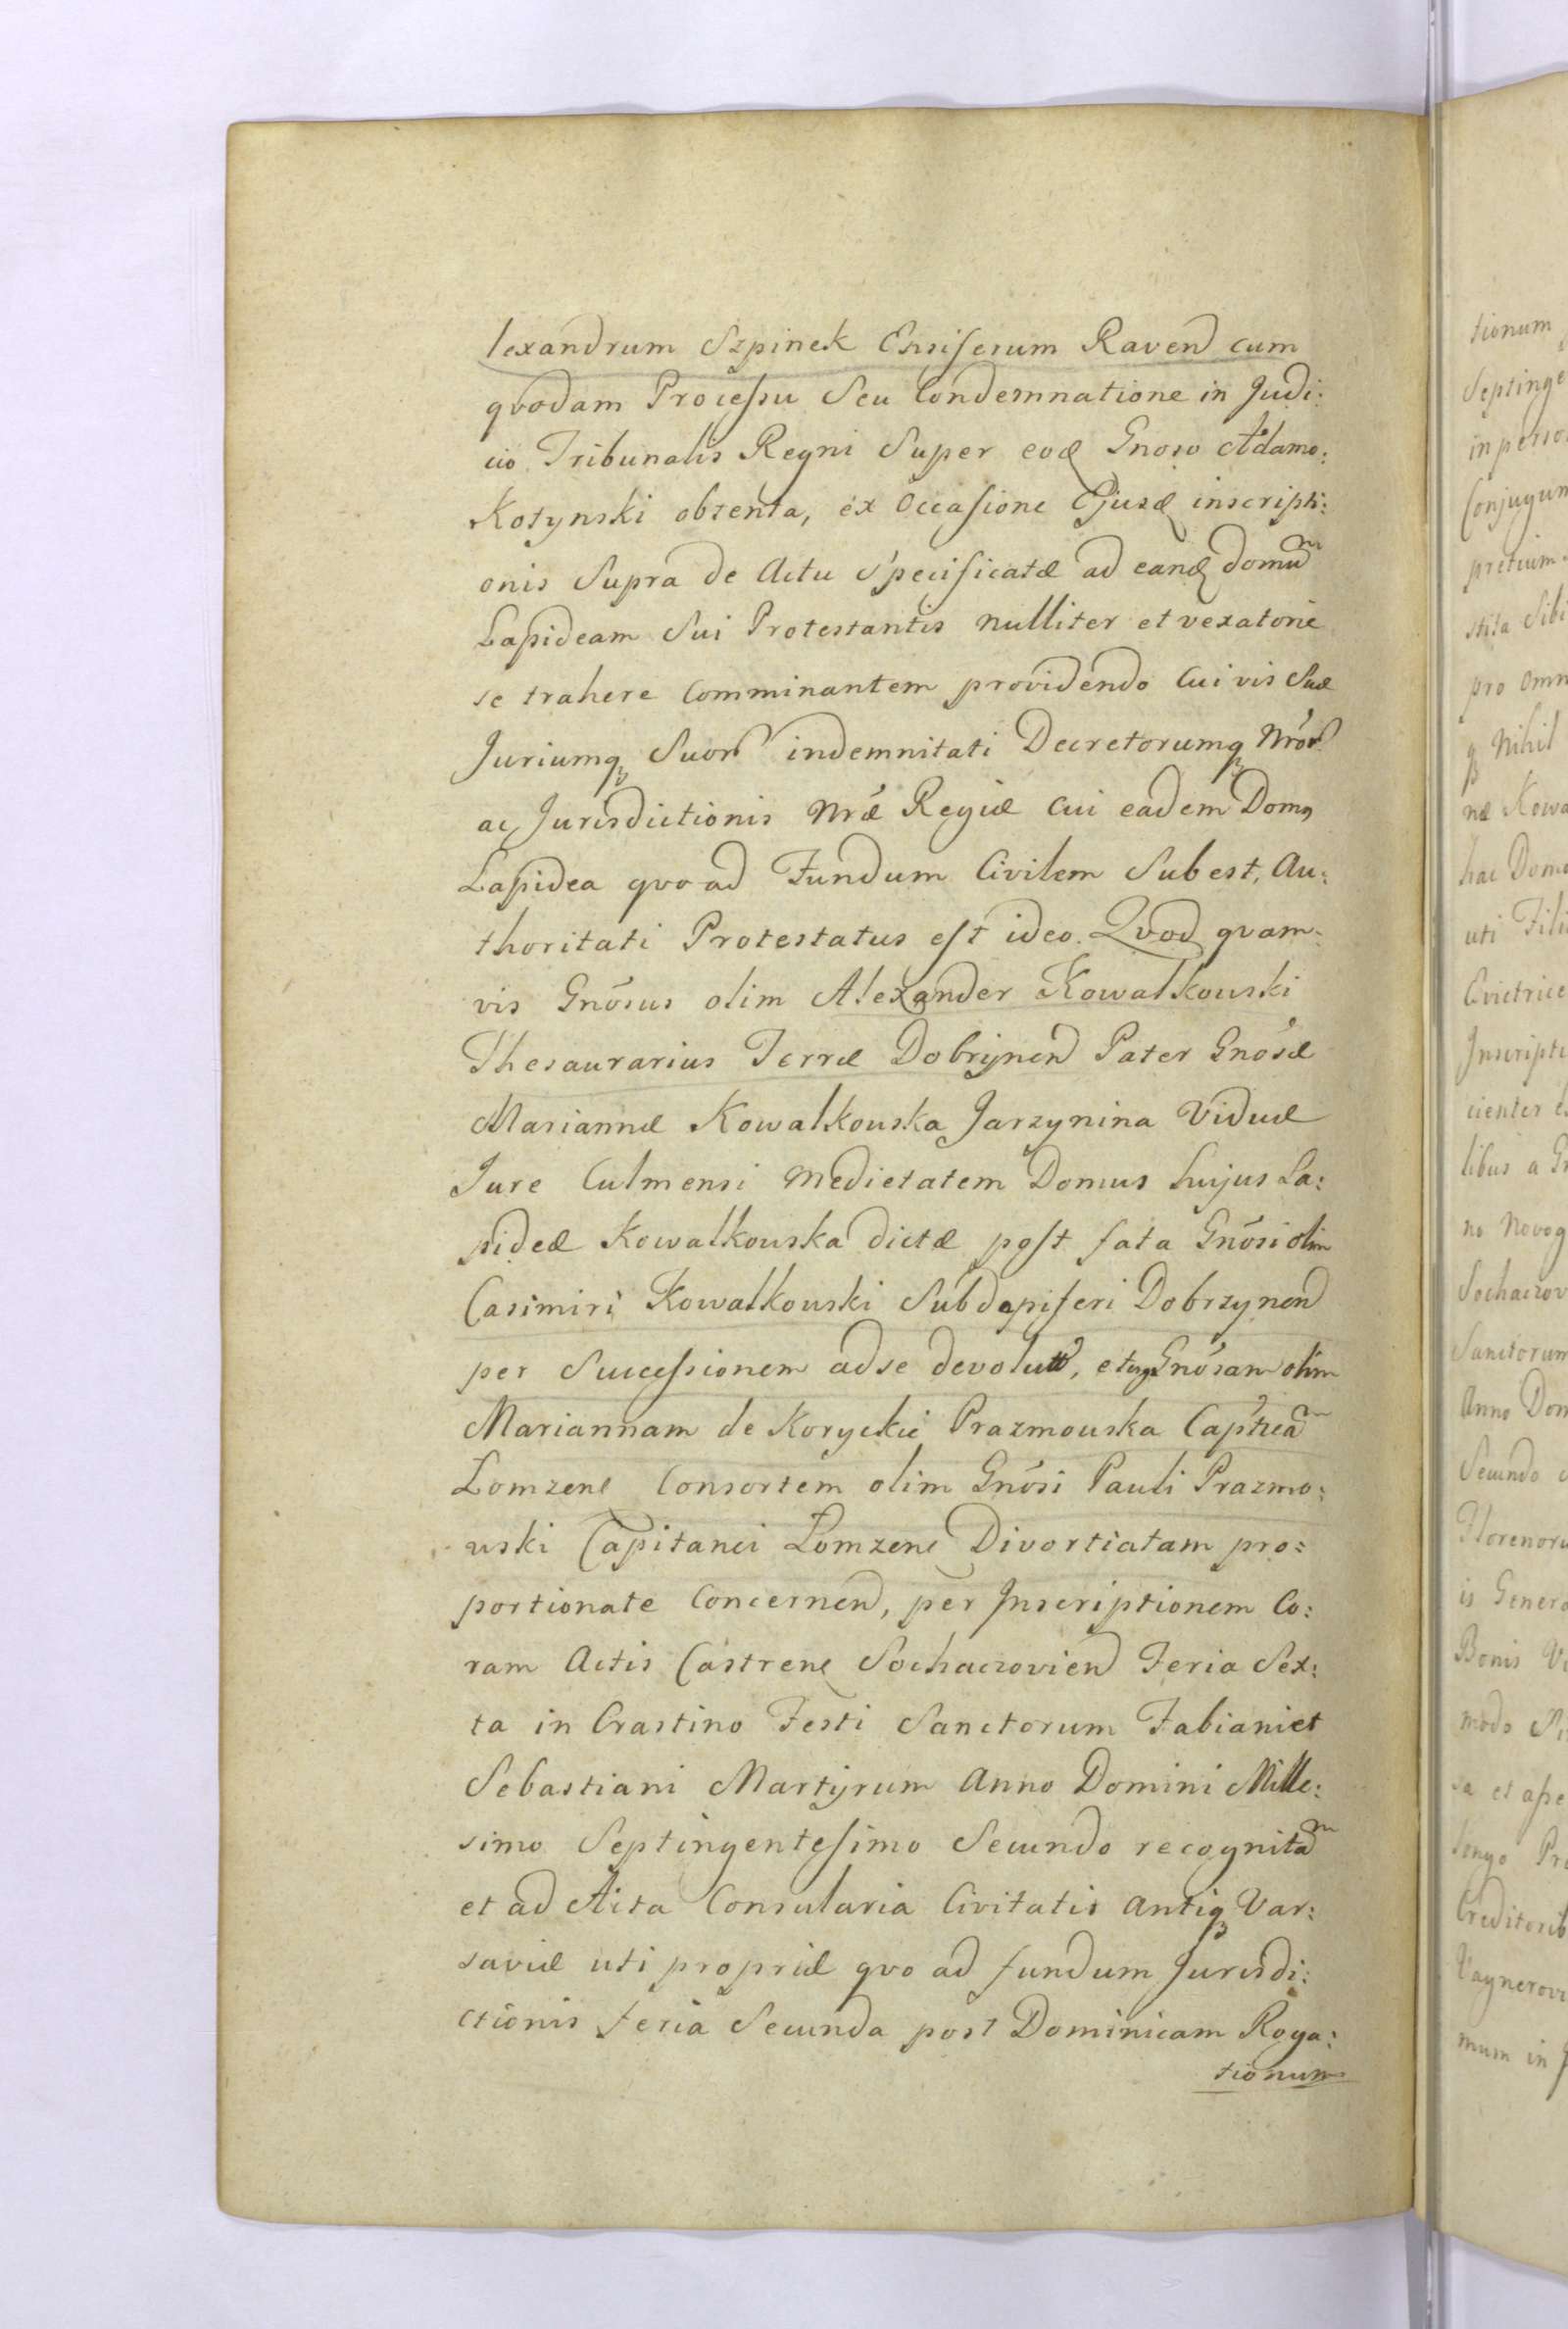 lexandrum Szpinek Ensiferum Ravend cum
qvodam Processu Seu Condemnatione in Judi:
cio Tribunalis Regni Super eod Gnoso Adamo:
Kotynski obtenta, ex Occasione Ejusd inscripti:
onis Supra de Actu Specificatæ ad eand domum
Lapideam Sui Protestantis nulliter et vexatorie
se trahere Comminantem providendo Cuivis Suæ
Juriumq Suor indemnitati Decretorumq Nror
ac Jurisdictionis Nræ Regiæ Cui eadem Domq
Lapidea qvo ad Fundum Civilem Subest, Au:
thoritati Protestatus est ideo. Qvod qvam:
vis Gnosus olim Alexander Kowalkowski
Thesaurarius Terræ Dobrijnen Pater Gnosæ
Mariannæ Kowalkowska Jarzynina Viduæ
Jure Culmensi Medietatem Domus hujus La:
pideæ Kowalkowska dictæ post fata Gnosi olim
Casimiri Kowalkowski Subdapiferi Dobrzynen
per Successionem ad se devolut, Gnosam olim
Mariannam de Koryckie Prazmowska Captnea
Lomzene Consortem olim Gnosi Pauli Prazmo:
wski Capitanei Lomzene Divortiatam pro:
portionate Concernen, per Inscriptionem Co:
ram Actis Castrene Sochaczovien Feria Sex:
ta in Crastino Festi Sanctorum Fabiani et
Sebastiani Martijrum Anno Domini Mille:
simo Septingentesimo Secundo recognitam
et ad Acta Consularia Civitatis Antiq Var:
saviæ uti propriæ qvo ad fundum Jurisdi:
ctionis feria Secunda post Dominicam Roga:
tionum
tionum
Septinge
in perso
Conjugum
pretium
stita Sibi
pro Omn
Nihil
næ Kowa
hac Domo
uti Filia
Evictrice
Inscripti
cienter
libus a
no Novog
Sochaczov
Sanctorum
Anno Dom
Secundo
Florenoru
is Genero
Bonis
modo
sa et ape
longo Pr
Creditorib
Vagnerovi
mum in